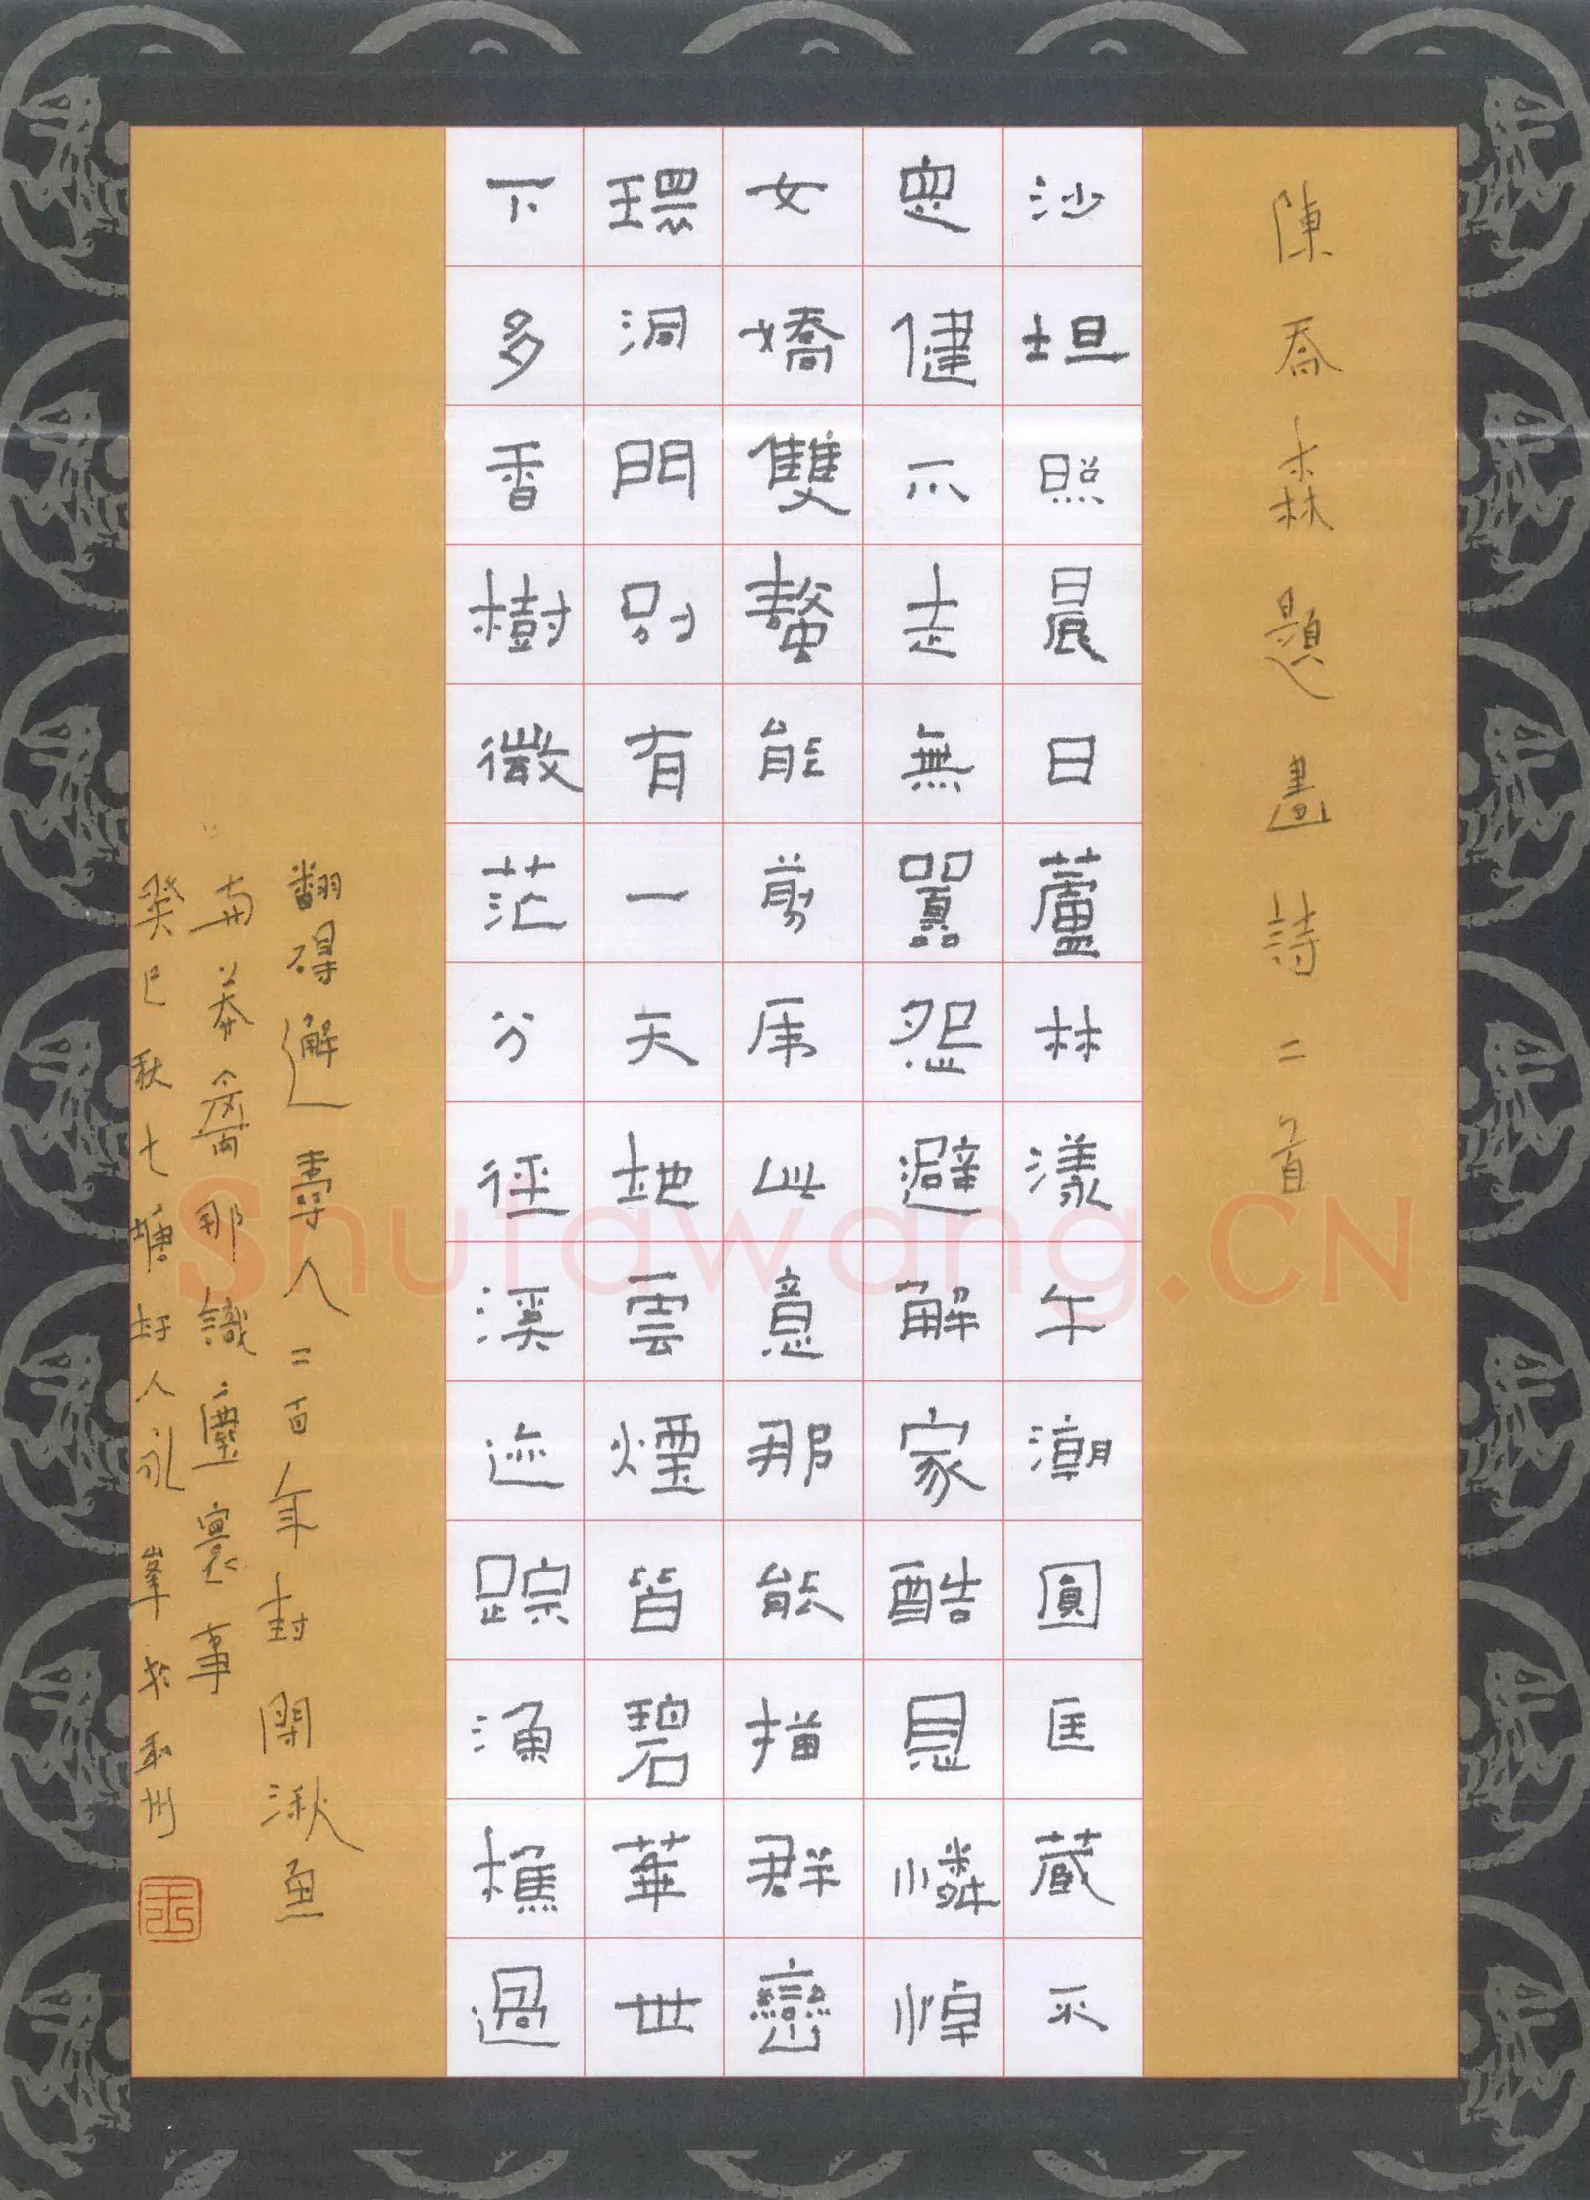 陳喬森題畫詩二首
沙坦照晨日蘆林漾午潮圓匡蔵平
忠健不走無器怨避解家酷恩憐悼
女嬌雙螯能剪虎此意那能描群巒
環洞門別有一天地雲煙皆碧華世
下多香樹微茫分徑溪迹踪漁樵過
翻得邂壽人二百年封開湫魚
南莽禽那識塵寰事
癸巳秋七塘村人礼峯於禾州
Shufawang.CN